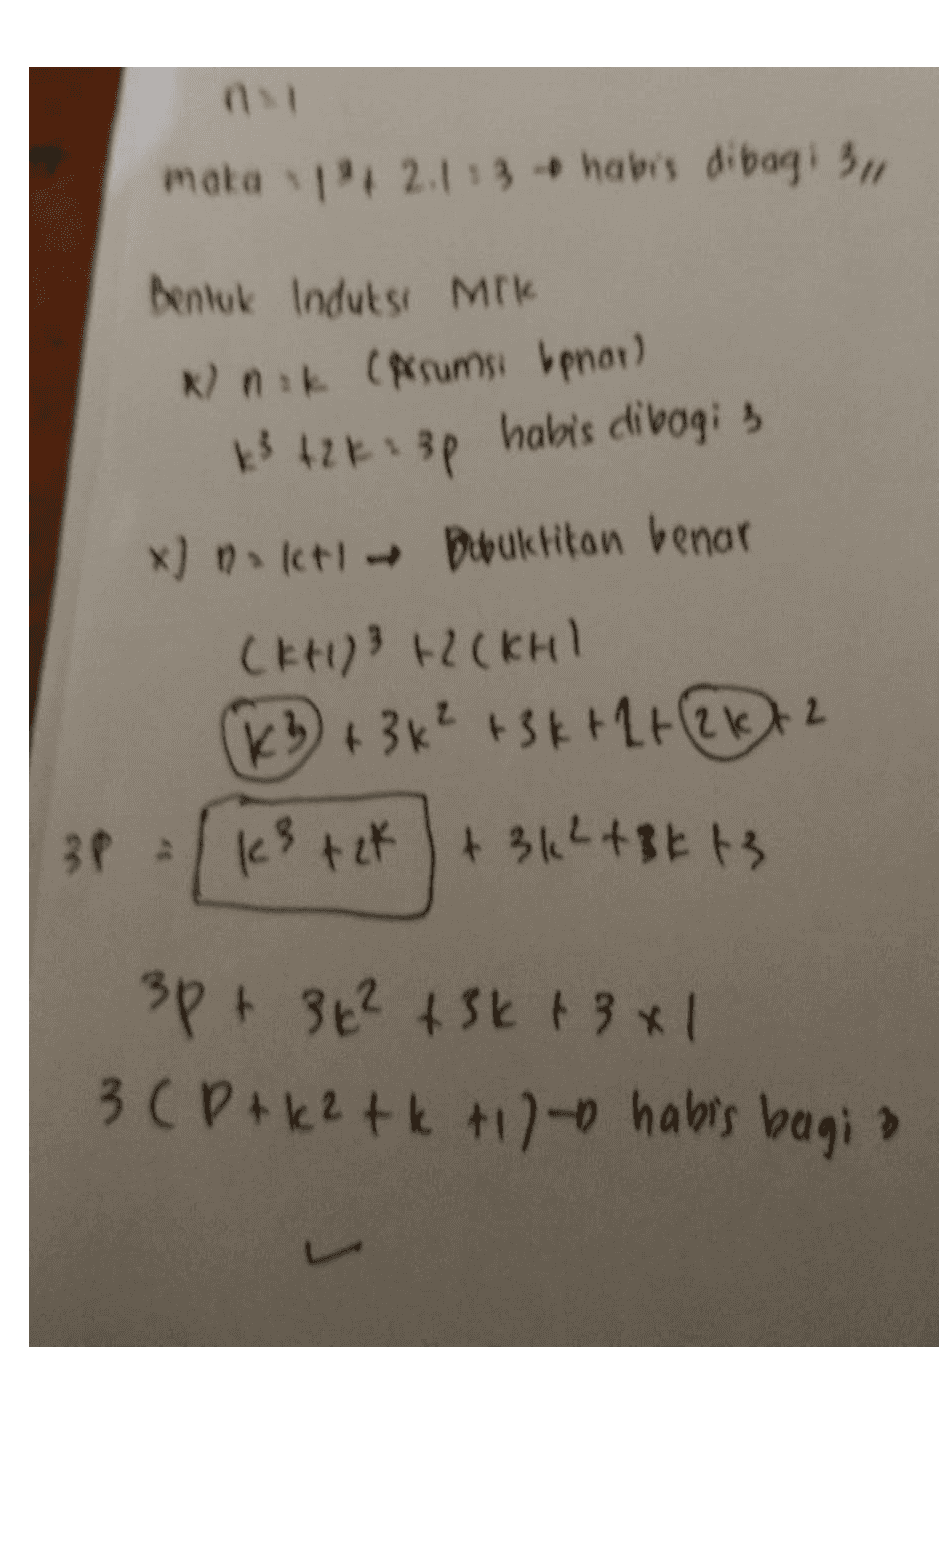 n=1
maka = 1³+ 2.1 = 3 → habis dibagi 3,,
Bentuk Induksi MTK
*) n=k (Asumsi benar)
k³ +2k = 3p habis dibagi 3
x) n=k+1 → Dibuktikan benar
(k+1)³ +2(k+1
k³ + 3k² +3k+1+2k+2
3P = k³ +2k + 3k²+3k+3
3p + 3k² +3k +3 x 1
3(P+k²+k +1)→ habis bagi 3